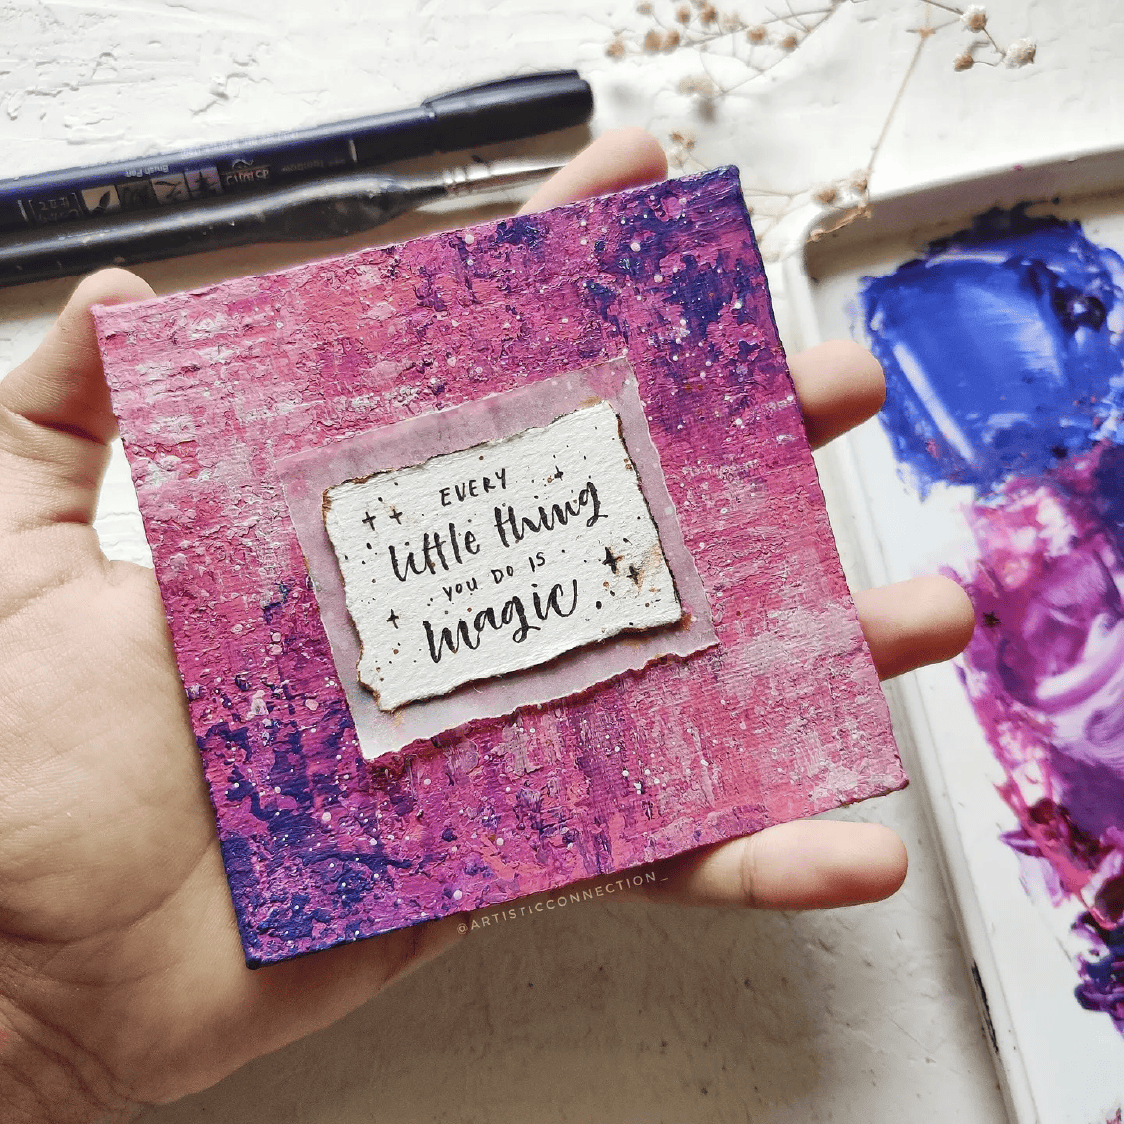 Brush Pen
EVERY
little thing
you DO IS
magic.
@ARTISTICCONNECTION_